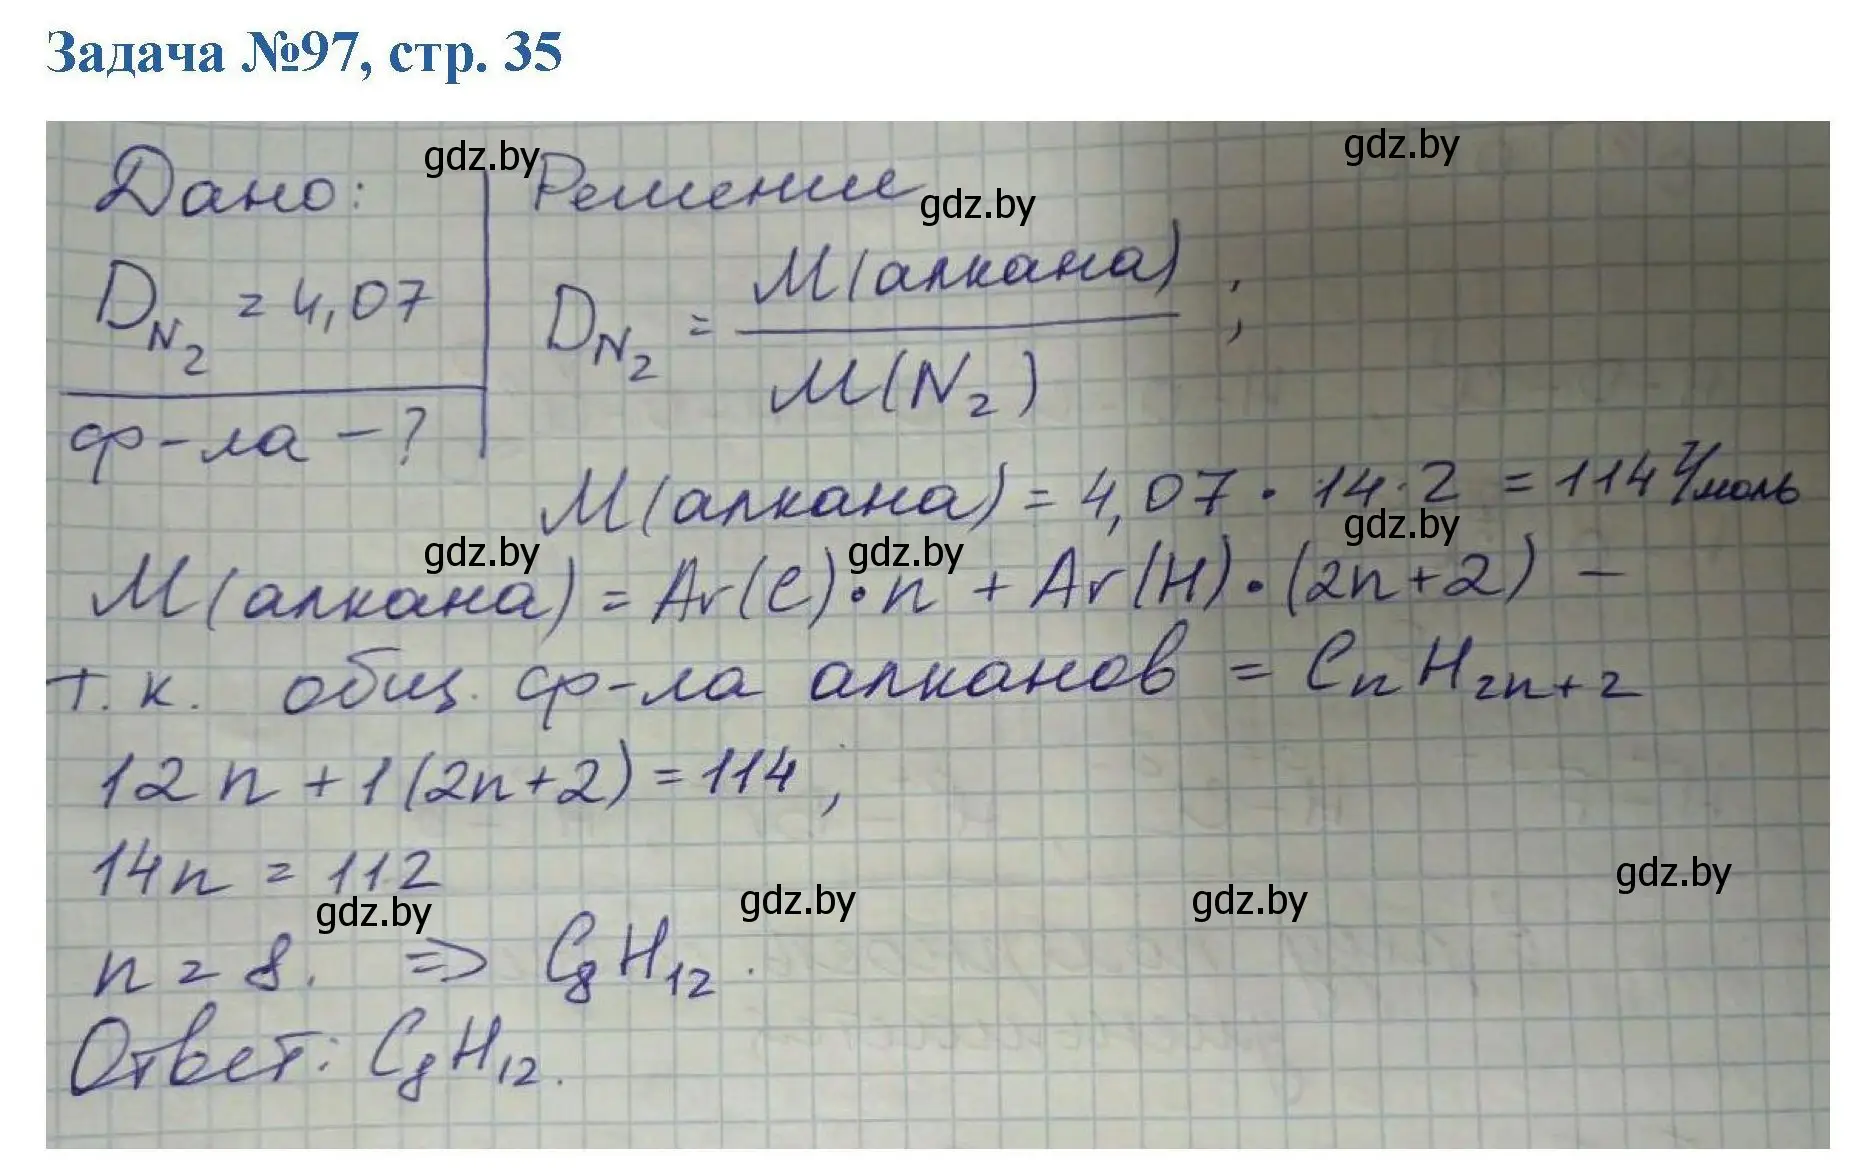 Задача №97, стр. 35
gdz.by
gdz.by
Дано: Решение
gdz.by
D_{N_2} = 4,07
D_{N_2} = M(алкана) / M(N_2) ;
ф-ла - ?
M(алкана) = 4,07 · 14 · 2 = 114 г/моль
gdz.by
gdz.by
gdz.by
M(алкана) = Ar(C) · n + Ar(H) · (2n+2) -
т.к. общ. ф-ла алканов = C_nH_{2n+2}
12n + 1(2n+2) = 114;
14n = 112
gdz.by
gdz.by
gdz.by
gdz.by
n = 8. => C_8H_{12}.
Ответ: C_8H_{12}.